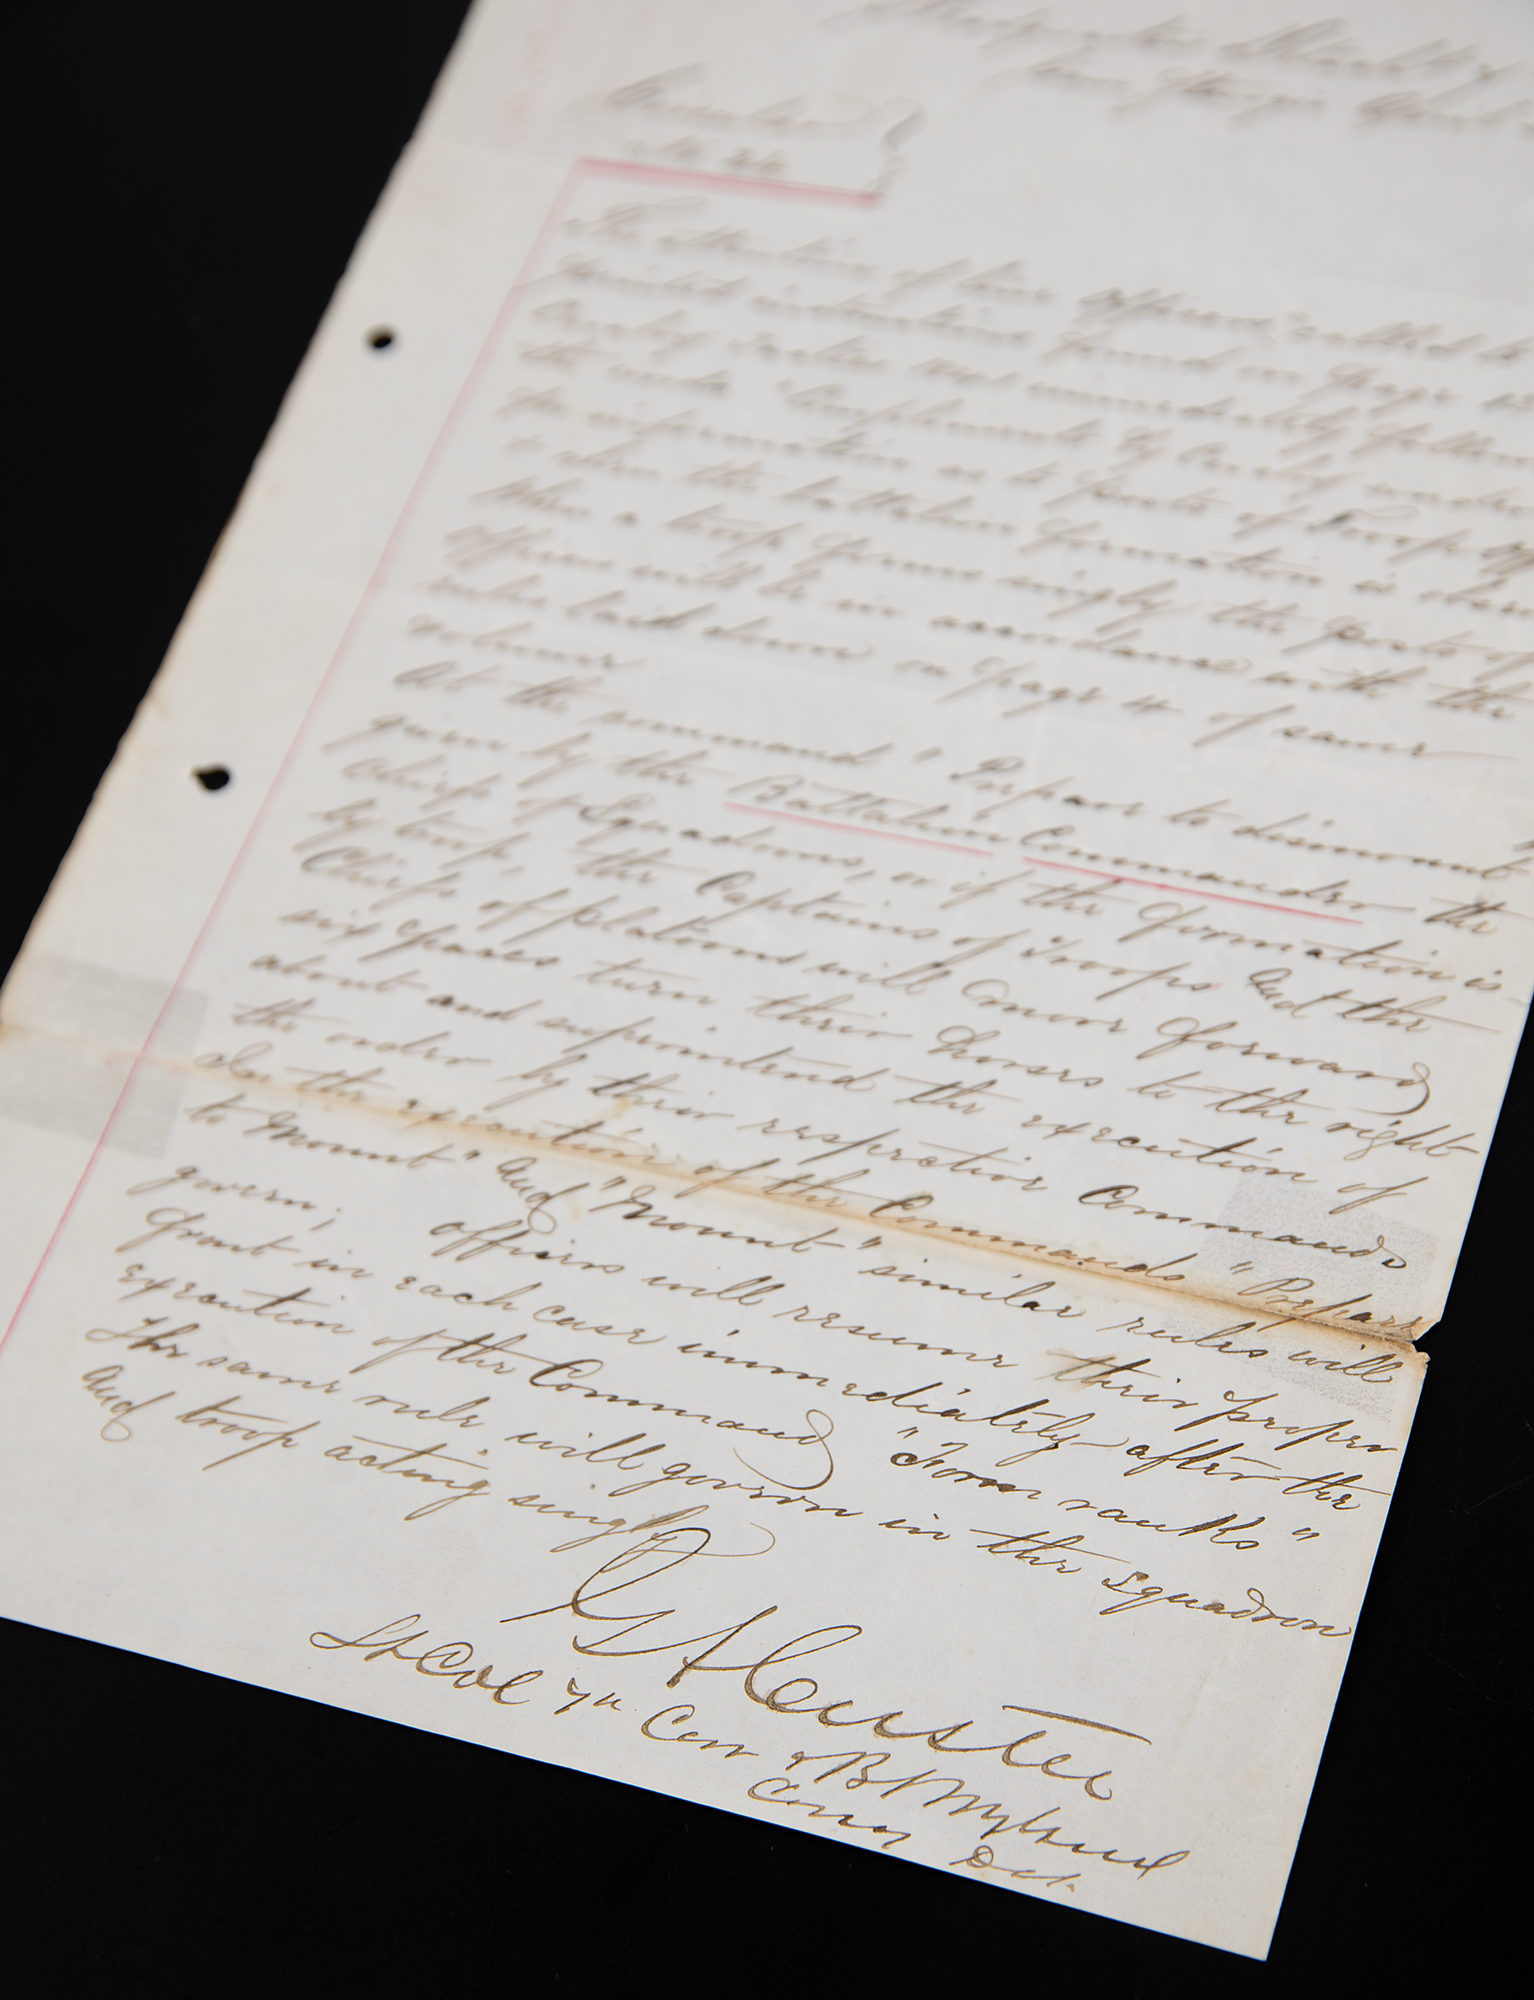 Circular
No 26
The attention of line officers, called to
printed instructions found on page
Cavalry Tactics immediately follow
the words "Employments by Cavalry
for information as to posts of Troop off
when the battalion formation is
When a troop forms singly the posts of
officers will be in accordance with the
rules laid down on page of same
volume
At the command "Prepare to dismount"
given by the Battalion Commander the
Chiefs of Squadrons, or if the formation is
by troop, the Captains of Troops and the
Chiefs of platoons will move forward
six paces turn their horses to the right
about and superintend the execution of
the order by their respective Commands
In the execution of the Commands "Prepare
to Mount" and "Mount" similar rules will
govern; officers will resume their proper
front in each case immediately after the
execution of the Command "Form ranks"
The same rule will govern in the squadron
and troop acting singly
G A Custer
Lt Col 7th Cav & B M Genl
Comg Det.